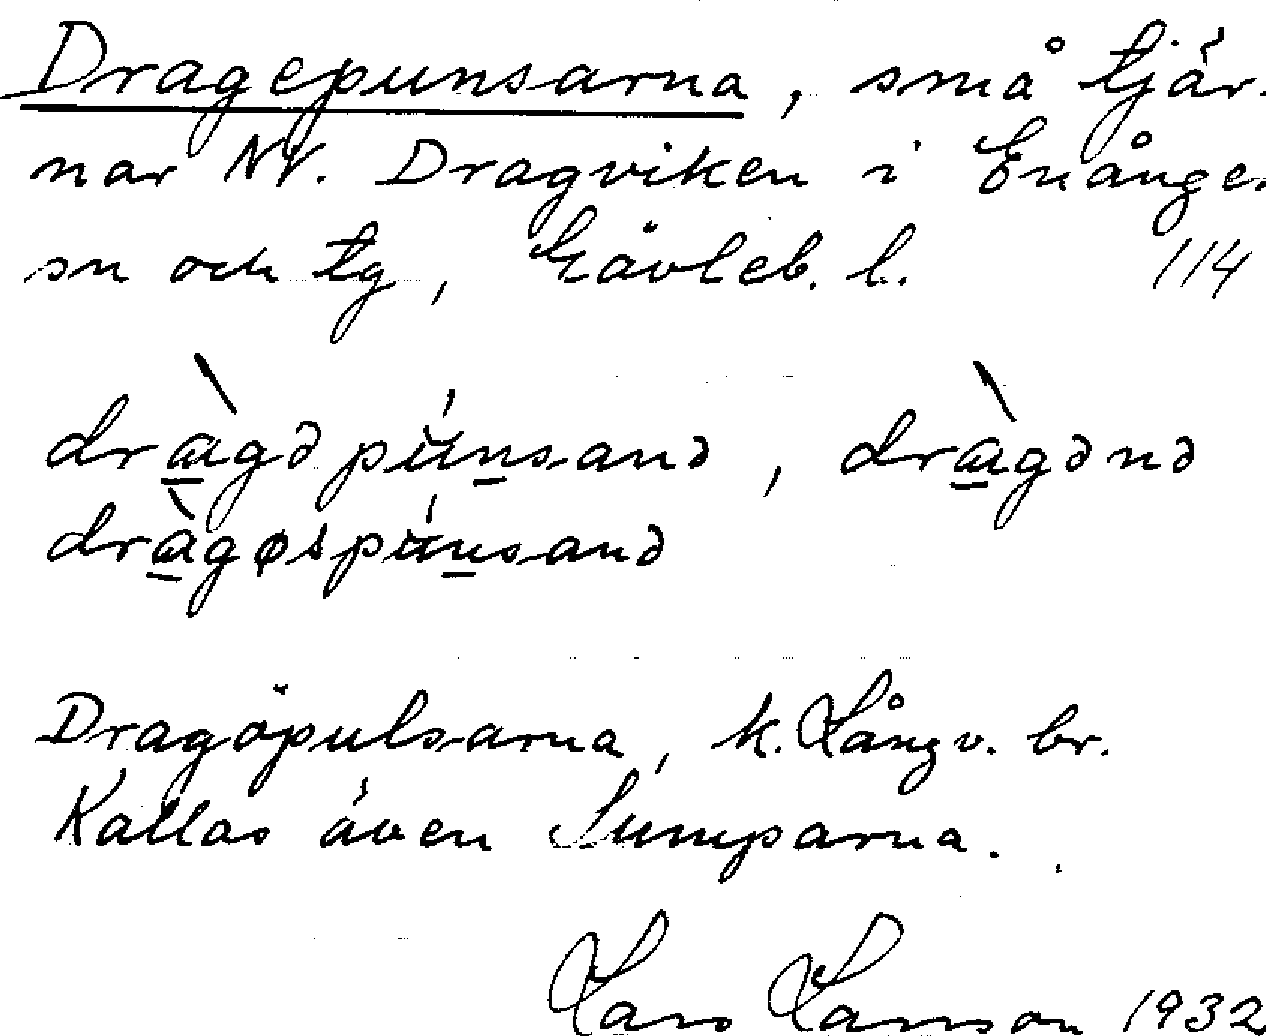 Dragepunsarna, små tjär-
nar NV. Dragviken i Enånger
sn och tg, Gävleb. l. 114
dràgə púnsanə, dràgənə
dràgøspúnsanə
Dragöpulsarna, k. Långv. br.
Kallas även Sumparna.
Lars Larsson 1932